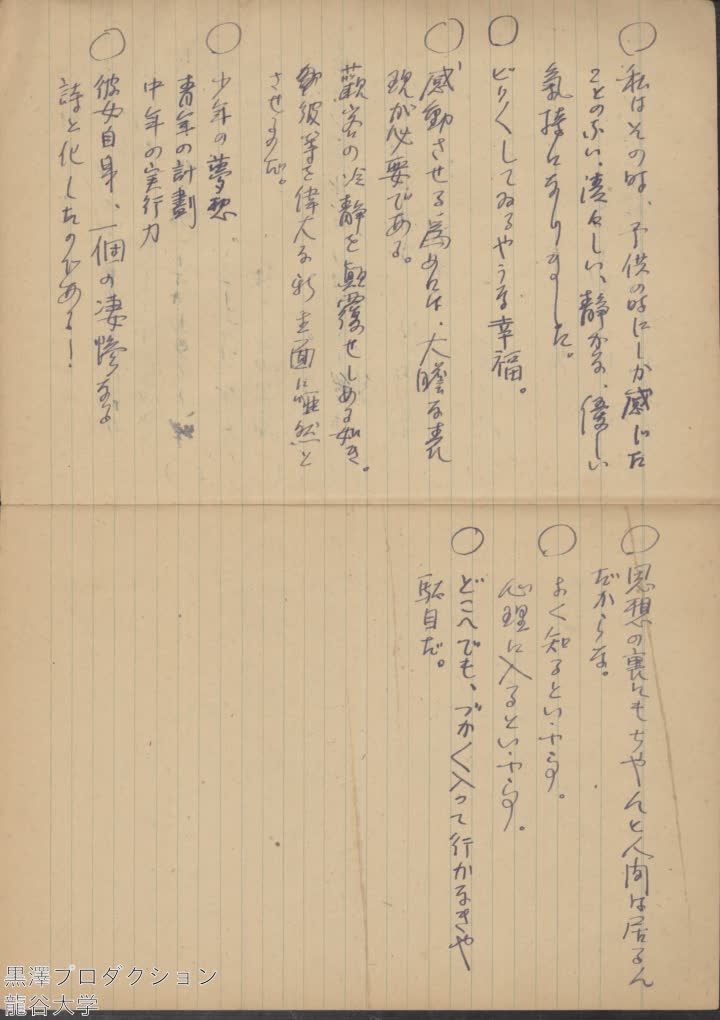 ○ 私はその時、子供の時にしか感じた
ことのない、清々しい、静かな、優しい
気持になりました。
○ ビクビクしてゐるやうな幸福。
○ 感動させる為めには、大膽な表
現が必要である。
観客の冷静を顚覆せしめる如き。
彼等を偉大な新生面に唖然と
させるのだ。
○ 少年の夢想
青年の計劃
中年の実行力
○ 彼女自身、一個の凄惨なる
詩と化したのである!
○ 思想の裏にもちやんと人間は居るん
だからな。
○ よく知るといふ事。
心理に入るといふ事。
○ どこへでも、づかづか入つて行かなきや
駄目だ。
黒澤プロダクション
龍谷大学